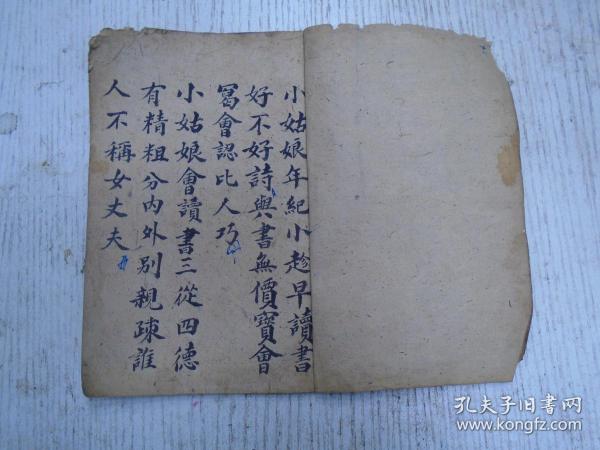 小姑娘年紀小趁早讀書
好不好詩與書無價寶會
寫會認比人巧
小姑娘會讀書三從四德
有精粗分內外别親疎誰
人不稱女丈夫
孔夫子旧书网
www.kongfz.com